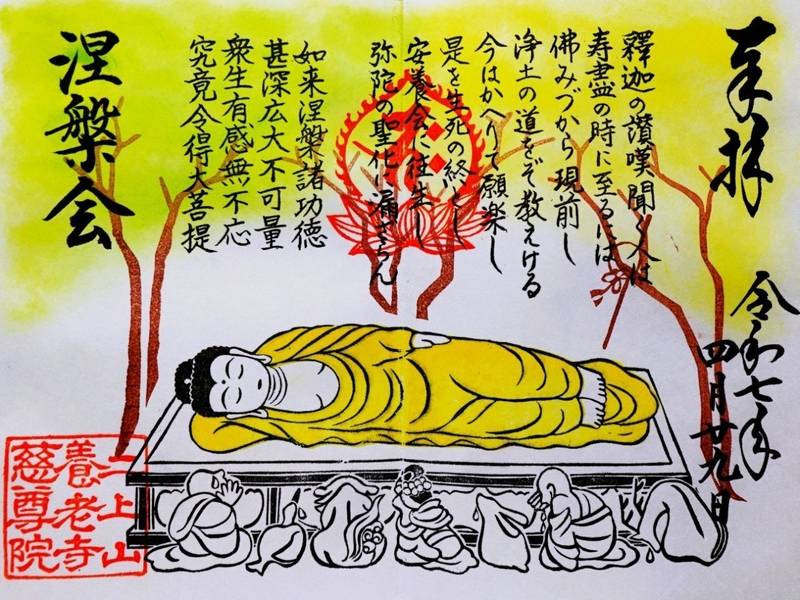 奉拝
令和七年
四月廿九日
釋迦の讃嘆聞く人は
寿盡の時に至るには
佛みづから現前し
浄土の道をぞ教えける
今はかへりて願楽し
是を生死の終とし
安養会に往生し
弥陀の聖化に漏ざらん
如来涅槃諸功徳
甚深広大不可量
衆生有感無不応
究竟令得大菩提
涅槃会
二上山
養老寺
慈尊院